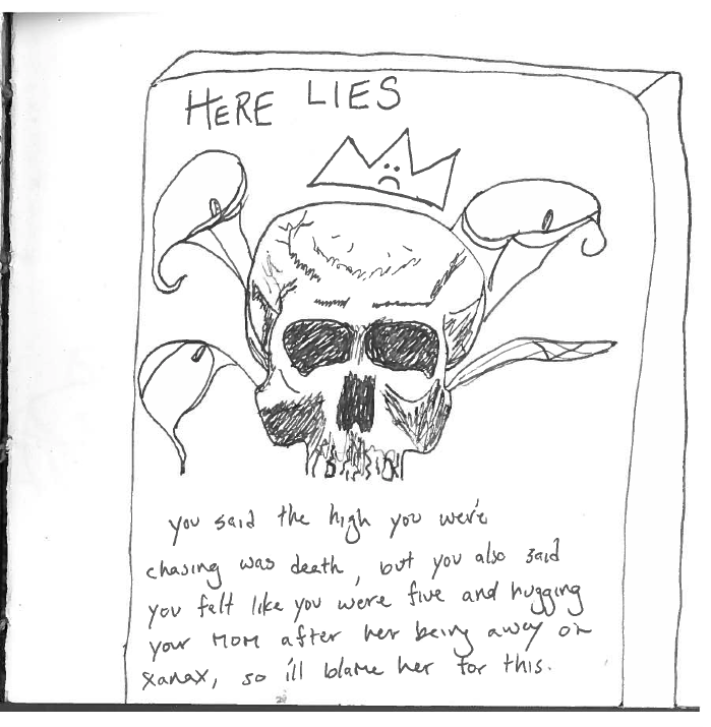 HERE LIES
you said the high you were
chasing was death, but you also said
you felt like you were five and hugging
your mom after her being away on
xanax, so ill blame her for this.